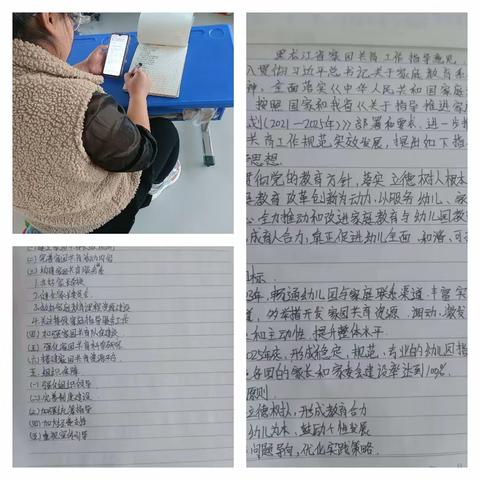 (二)完善家园共育活动内容
(三)构建家园共育服务体系
1.办好家长学校
2.健全家长委员会
4.关注特殊家庭指导服务工作
(四)加强家园共育队伍建设
(五)强化家园共育科学研究
(六)搭建家园共育资源平台
五.组织保障
(一)强化组织领导
(二)完善制度建设
(三)加强统筹指导
(四)加大经费支持
(五)重视宣传引导
黑龙江省家园共育工作指导意见
入贯彻习近平总书记关于家庭教育
神,全面落实《中华人民共和国家庭
按照国家和我省《关于指导推进家庭
划(2021—2025年)》部署和要求,进一步
共育工作规范实效发展,提出如下指
思想.
贯彻党的教育方针,落实立德树人根本
教育改革创新为动力,以服务幼儿、家
全力推动和改进家庭教育与幼儿园教
成育人合力,真正促进幼儿全面、和谐、可
标.
年,畅通幼儿园与家庭联系渠道.丰富
道,切实推开发家园共育资源.调动、激发
和主动性,提升整体水平.
2025年底,形成稳定、规范、专业的幼儿园指
各园的家长和家委会建设率达到100%.
原则
立德树人,形成教育合力
幼儿为本,鼓励个性发展
问题导向,优化实践策略.